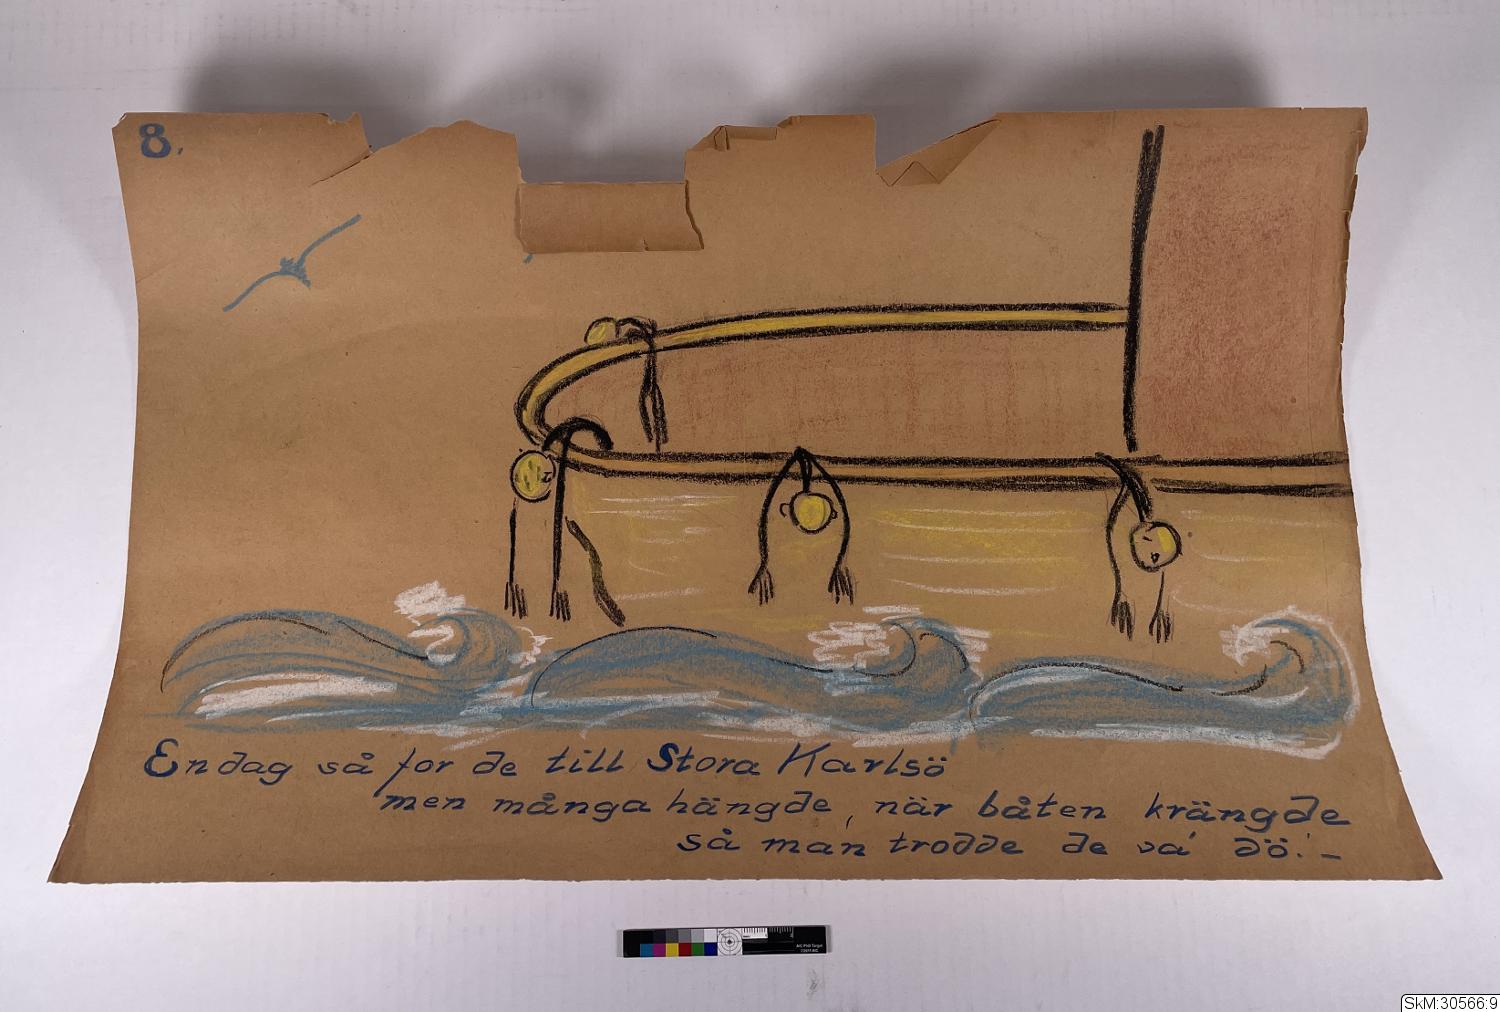 8.
En dag så for de till Stora Karlsö
men många hängde, när båten krängde
så man trodde de va' dö! –
SkM:30566:9